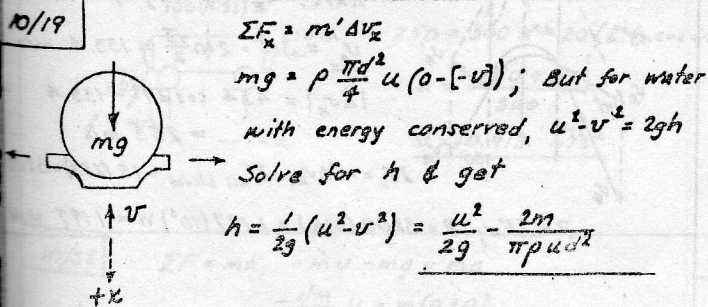 10/19
ΣFₓ = m' Δvₓ
mg = ρ πd²/4 u (0-[-v]); But for water
with energy conserved, u²-v² = 2gh
Solve for h & get
h = 1/2g (u²-v²) = u²/2g - 2m/πρud²
mg
v
+x